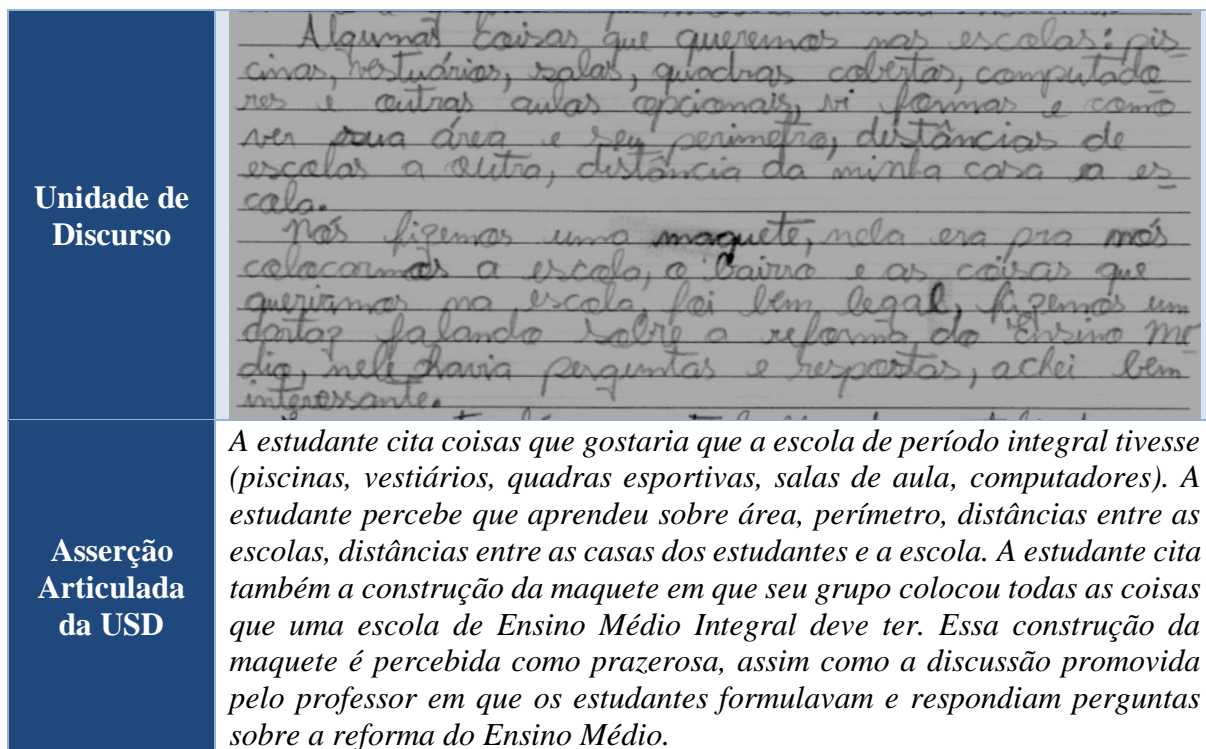 Unidade de
Discurso
Algumas coisas que queremos nas escolas: pis
cinas, vestuários, salas, quadras cobertas, computado
res e outras aulas opcionais, vi formas e como
ver sua área e seu perimetro, distâncias de
escolas a outra, distância da minha casa a es
cola.
Nós fizemos uma maquete, nela era pra nós
colocarmos a escola, o bairro e as coisas que
queriamos na escola, foi bem legal, fizemos um
cartaz falando sobre a reforma do Ensino Mé
dio, nele havia perguntas e respostas, achei bem
interessante.
Asserção
Articulada
da USD
A estudante cita coisas que gostaria que a escola de período integral tivesse
(piscinas, vestiários, quadras esportivas, salas de aula, computadores). A
estudante percebe que aprendeu sobre área, perímetro, distâncias entre as
escolas, distâncias entre as casas dos estudantes e a escola. A estudante cita
também a construção da maquete em que seu grupo colocou todas as coisas
que uma escola de Ensino Médio Integral deve ter. Essa construção da
maquete é percebida como prazerosa, assim como a discussão promovida
pelo professor em que os estudantes formulavam e respondiam perguntas
sobre a reforma do Ensino Médio.